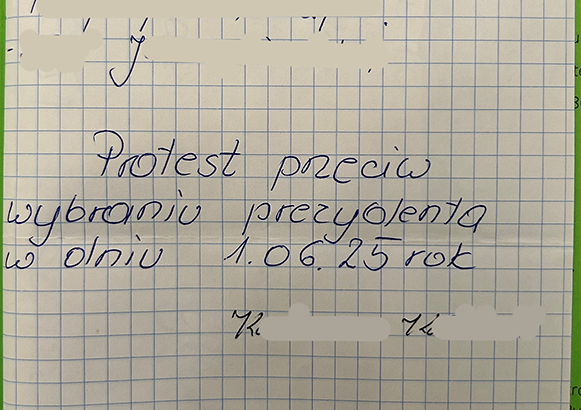 Protest przeciw
wybraniu prezydenta
w dniu 1.06.25 rok